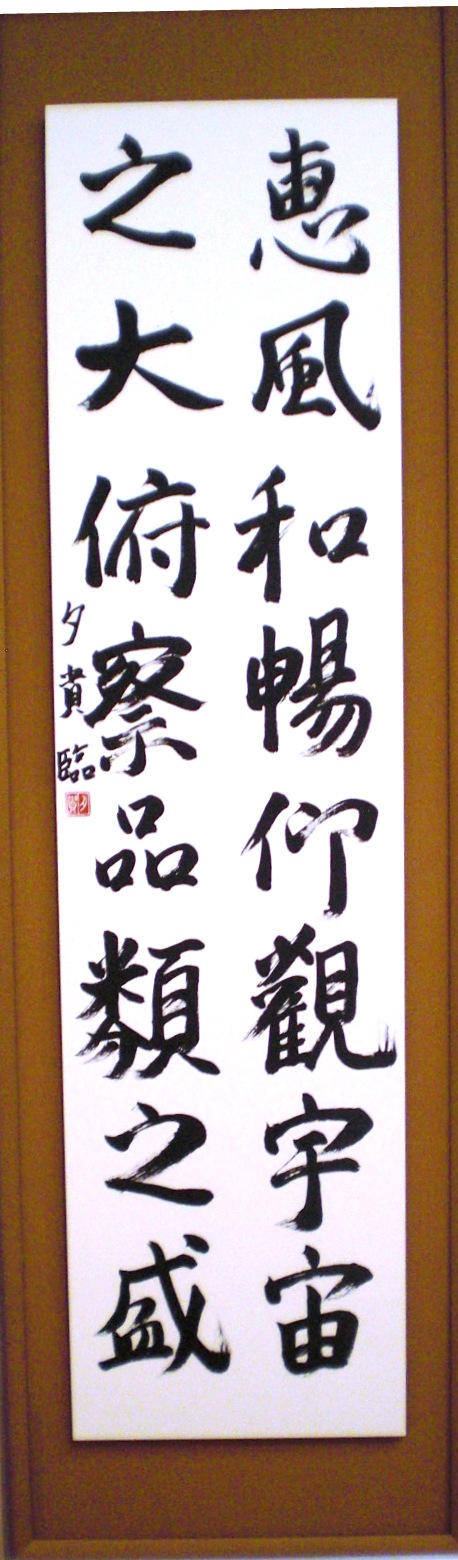 恵風和暢仰觀宇宙
之大俯察品類之盛
夕貴臨